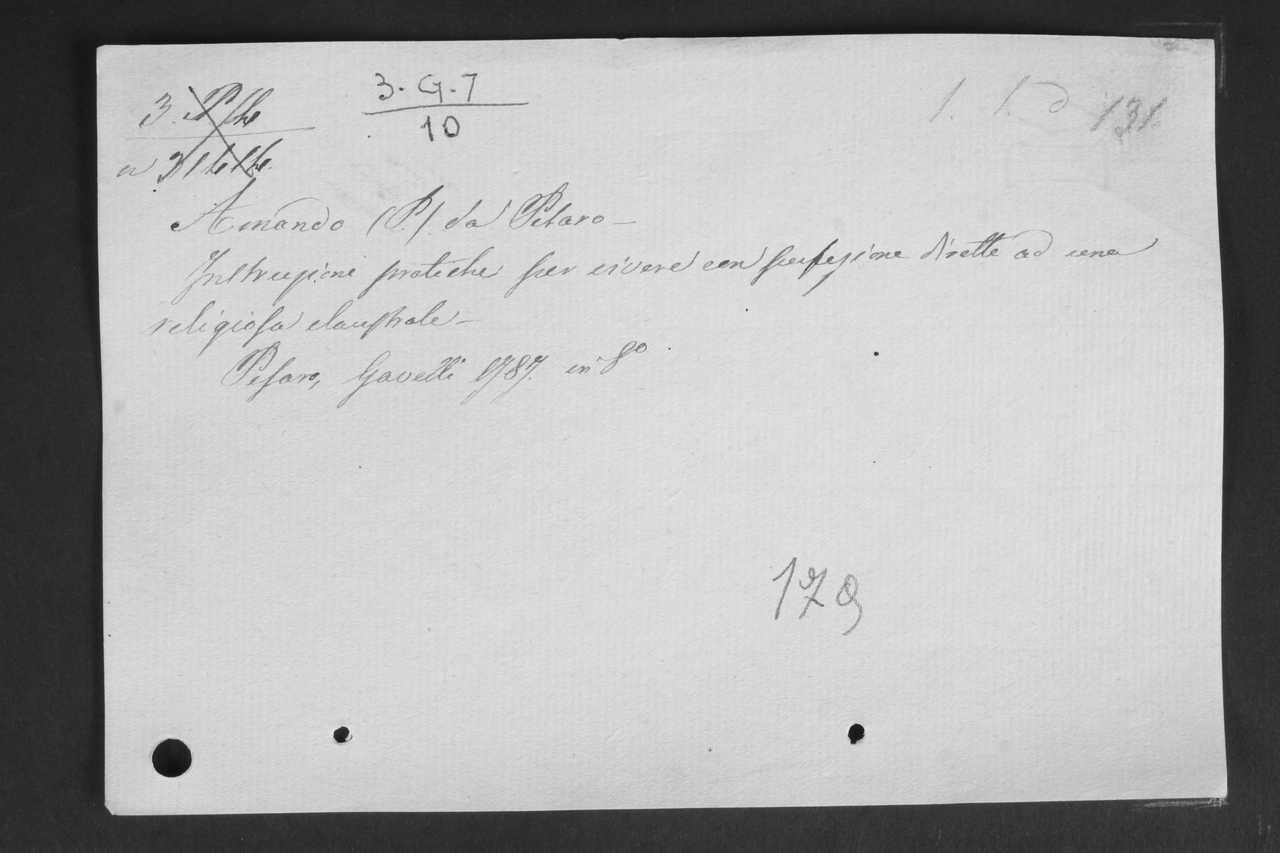 3. G. 7
10
131
Amando (P.) da Pesaro -
Instruzione pratiche per vivere con perfezione dirette ad una
religiosa claustrale -
Pesaro, Gavelli 1787. in 8º
179